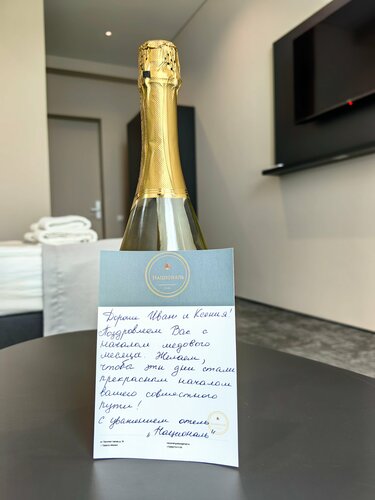 НАЦИОНАЛЬ
Дорогие Иван и Ксения!
Поздравляем Вас с
началом медового
месяца. Желаем,
чтобы эти дни стали
прекрасным началом
вашего совместного
пути!
С уважением отель
„Националь"